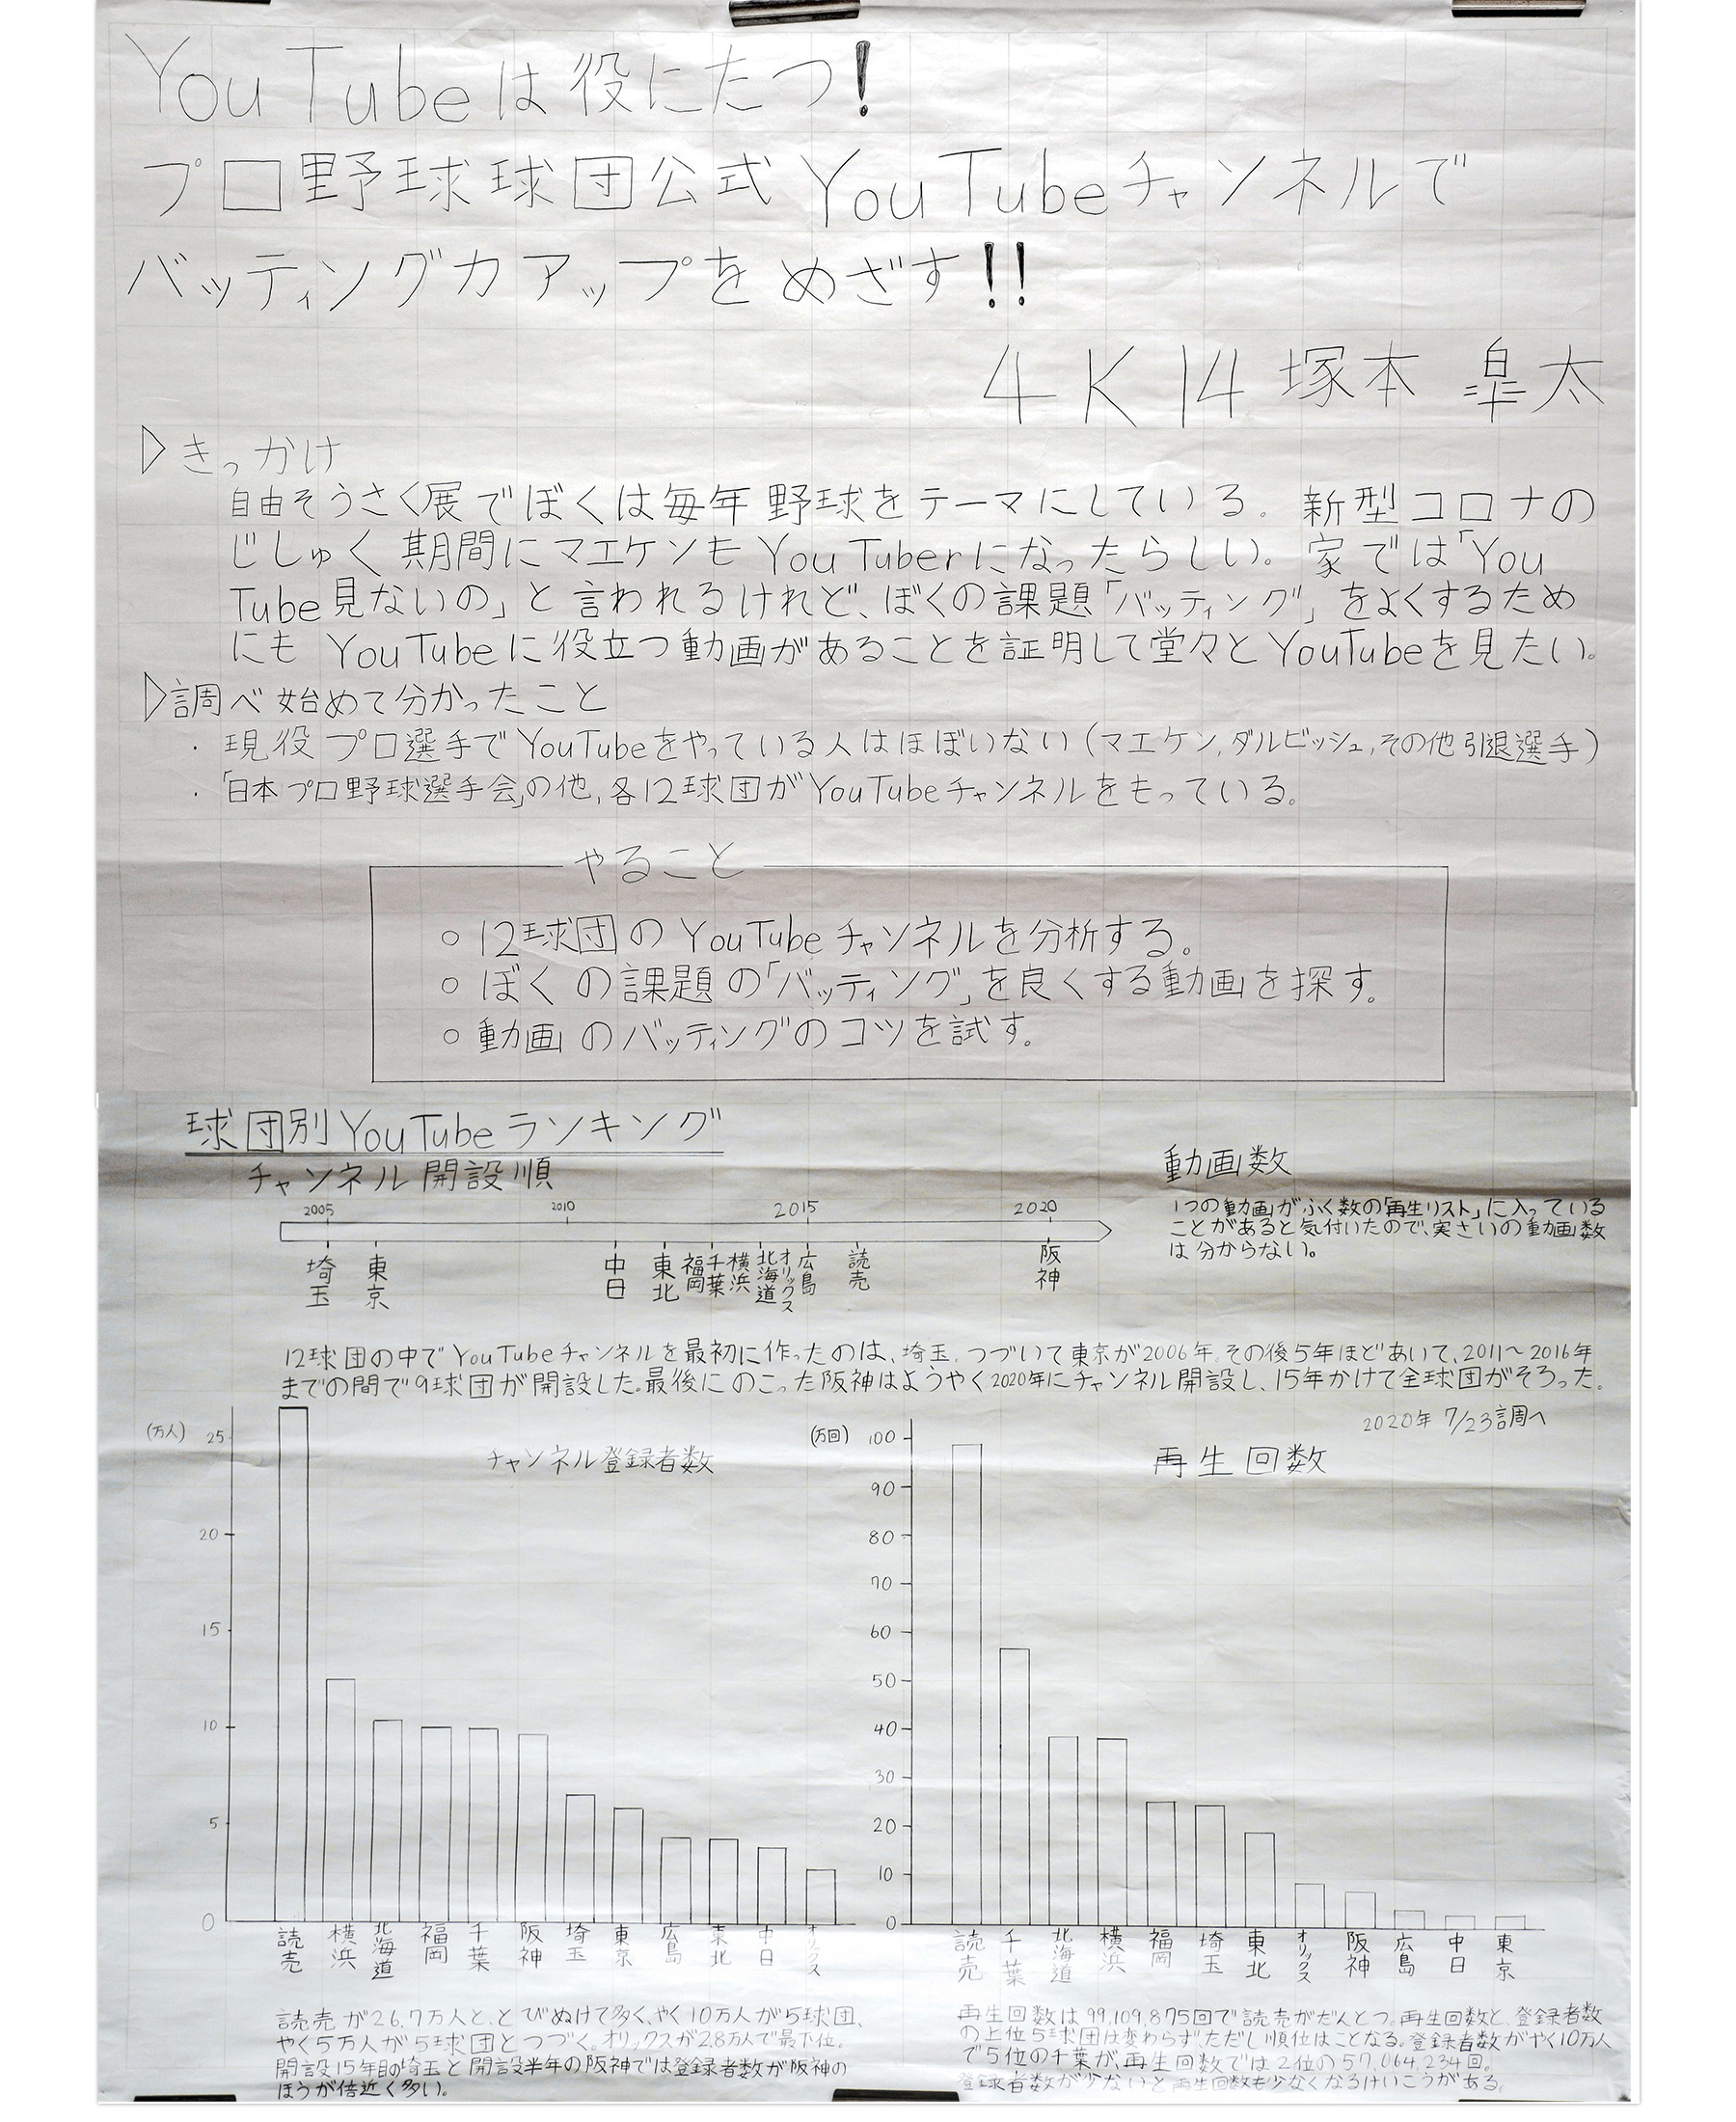 YouTubeは役にたつ!
プロ野球球団公式YouTubeチャンネルで
バッティング力アップをめざす!!
4K14 塚本 皐太
▷きっかけ
自由そうさく展でぼくは毎年野球をテーマにしている。新型コロナの
じしゅく期間にマエケンもYouTuberになったらしい。家では「You
Tube見ないの」と言われるけれど、ぼくの課題「バッティング」をよくするため
にもYouTubeに役立つ動画があることを証明して堂々とYouTubeを見たい。
▷調べ始めて分かったこと
・現役プロ選手でYouTubeをやっている人はほぼいない(マエケン,ダルビッシュ,その他引退選手)
・「日本プロ野球選手会」の他,各12球団がYouTubeチャンネルをもっている。
やること
○12球団のYouTubeチャンネルを分析する。
○ぼくの課題の「バッティング」を良くする動画を探す。
○動画のバッティングのコツを試す。
球団別YouTubeランキング
チャンネル開設順
2005 2010 2015 2020
埼玉 東京 中日 東北 福岡 千葉 横浜 北海道 オリックス 広島 読売 阪神
動画数
1つの動画がふく数の「再生リスト」に入っている
ことがあると気付いたので、実さいの動画数
は分からない。
12球団の中でYouTubeチャンネルを最初に作ったのは、埼玉。つづいて東京が2006年。その後5年ほどあいて、2011〜2016年
までの間で9球団が開設した。最後にのこった阪神はようやく2020年にチャンネル開設し、15年かけて全球団がそろった。
2020年 7/23調べ
チャンネル登録者数
(万人)
25
20
15
10
5
0
読売 横浜 北海道 福岡 千葉 阪神 埼玉 東京 広島 東北 中日 オリックス
読売が26.7万人と、とびぬけて多く、やく10万人が5球団、
やく5万人が5球団とつづく。オリックスが2.8万人で最下位。
開設15年目の埼玉と開設半年の阪神では登録者数が阪神の
ほうが倍近く多い。
再生回数
(万回)
100
90
80
70
60
50
40
30
20
10
0
読売 千葉 北海道 横浜 福岡 埼玉 東北 オリックス 阪神 広島 中日 東京
再生回数は99,109,875回で読売がだんとつ。再生回数と、登録者数
の上位5球団は変わらず、ただし順位はことなる。登録者数がやく10万人
で5位の千葉が、再生回数では2位の57,064,234回。
登録者数が少ないと再生回数も少なくなるけいこうがある。